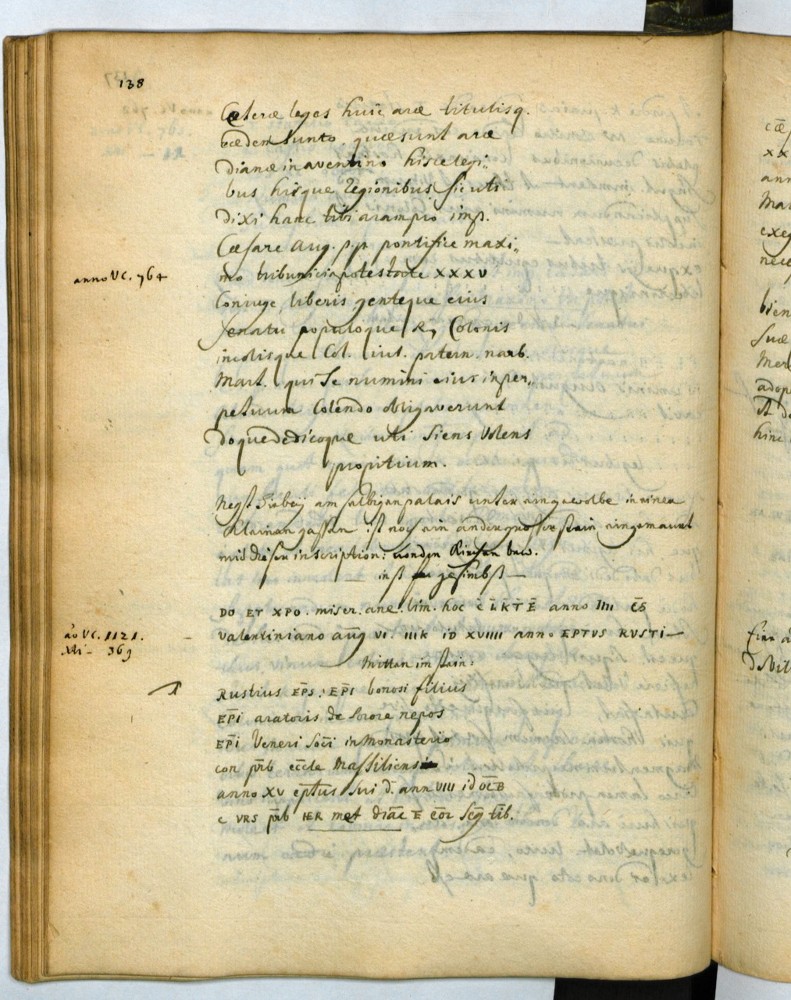 138
Cæteræ leges huic aræ titulisq.
eædem sunto. quæ sunt aræ
Dianæ in aventino hisce legi:
bus hisque regionibus sicuti
dixi hanc tibi aram pro imp.
Cæsare Aug. p.p. pontifice maxi:
anno VC. 764
mo tribunicia potestate XXXV
Coniuge liberis genteque eius
Senatu populoque R, Colonis
incolisque Col. iul. patern. narb.
Mart. qui Se numini eius inper:
petuum Colendo obligaverunt
doquededicoque uti Siens Volens
propitium.
Negst hiebej am salbigen palais unter ain gewolbe in einer
klainen gassen ist noch ain ander grosser stain eingemaurt
mit diser inscription:
gesimbst
DO ET XPO. miser. ane. lim. hoc C L K T E anno IIII CS
ao VC. 1121.
Xti - 369
Valentiniano aug VI. IIIK ID XVIIII anno EPTVS RVSTI
Mitten im stain:
Rustius EPS. EPI bonosi filius
EPI aratoris de Sorore nepos
EPI Veneri Soci in Monasterio
con prb eccle Massiliens
anno XV eptus sui d. ann VIII id OCB
C VRS prb IER met diac E cor Seq tib.